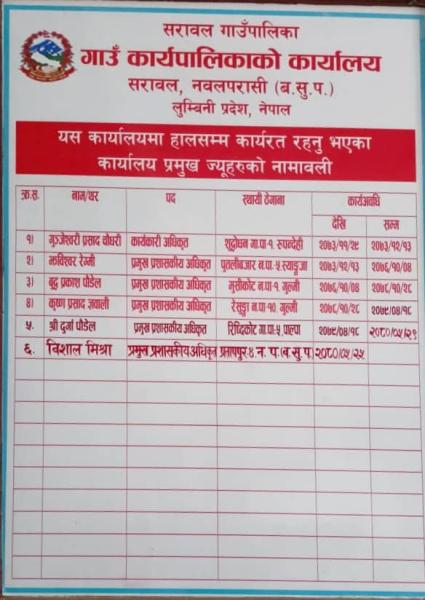 सरावल गाउँपालिका
गाउँ कार्यपालिकाको कार्यालय
सरावल, नवलपरासी (ब.सु.प.)
लुम्बिनी प्रदेश, नेपाल
यस कार्यालयमा हालसम्म कार्यरत रहनु भएका
कार्यालय प्रमुख ज्यूहरुको नामावली
क्र.स. नाम/थर पद स्थायी ठेगाना कार्यअवधि
देखि सम्म
१) गुञ्जेश्वरी प्रसाद चौधरी कार्यकारी अधिकृत शुद्धोधन गा.पा-१, रुपन्देही २०७३/११/२८ २०७३/१२/१३
२) ऋषिश्वर रेग्मी प्रमुख प्रशासकीय अधिकृत पुतलीबजार न.पा-५ स्याङ्जा २०७३/१२/१३ २०७६/१०/०४
३) बुद्व प्रकाश पौडेल प्रमुख प्रशासकीय अधिकृत मुसीकोट न.पा-१, गुल्मी २०७६/१०/०४ २०७८/१०/२८
४) कृष्ण प्रसाद ज्ञवाली प्रमुख प्रशासकीय अधिकृत रेसुङ्गा न.पा-१०, गुल्मी २०७८/१०/२८ २०७९/०४/१८
५. श्री दुर्गा पौडेल प्रमुख प्रशासकीय अधिकृत रिब्दिकोट गा.पा-५, पाल्पा २०७९/०४/१८ २०८०/५/२१
६. विशाल मिश्रा प्रमुख प्रशासकीय अधिकृत प्रतापपुर ४ न.प.(ब.सु.प) २०८०/५/२५